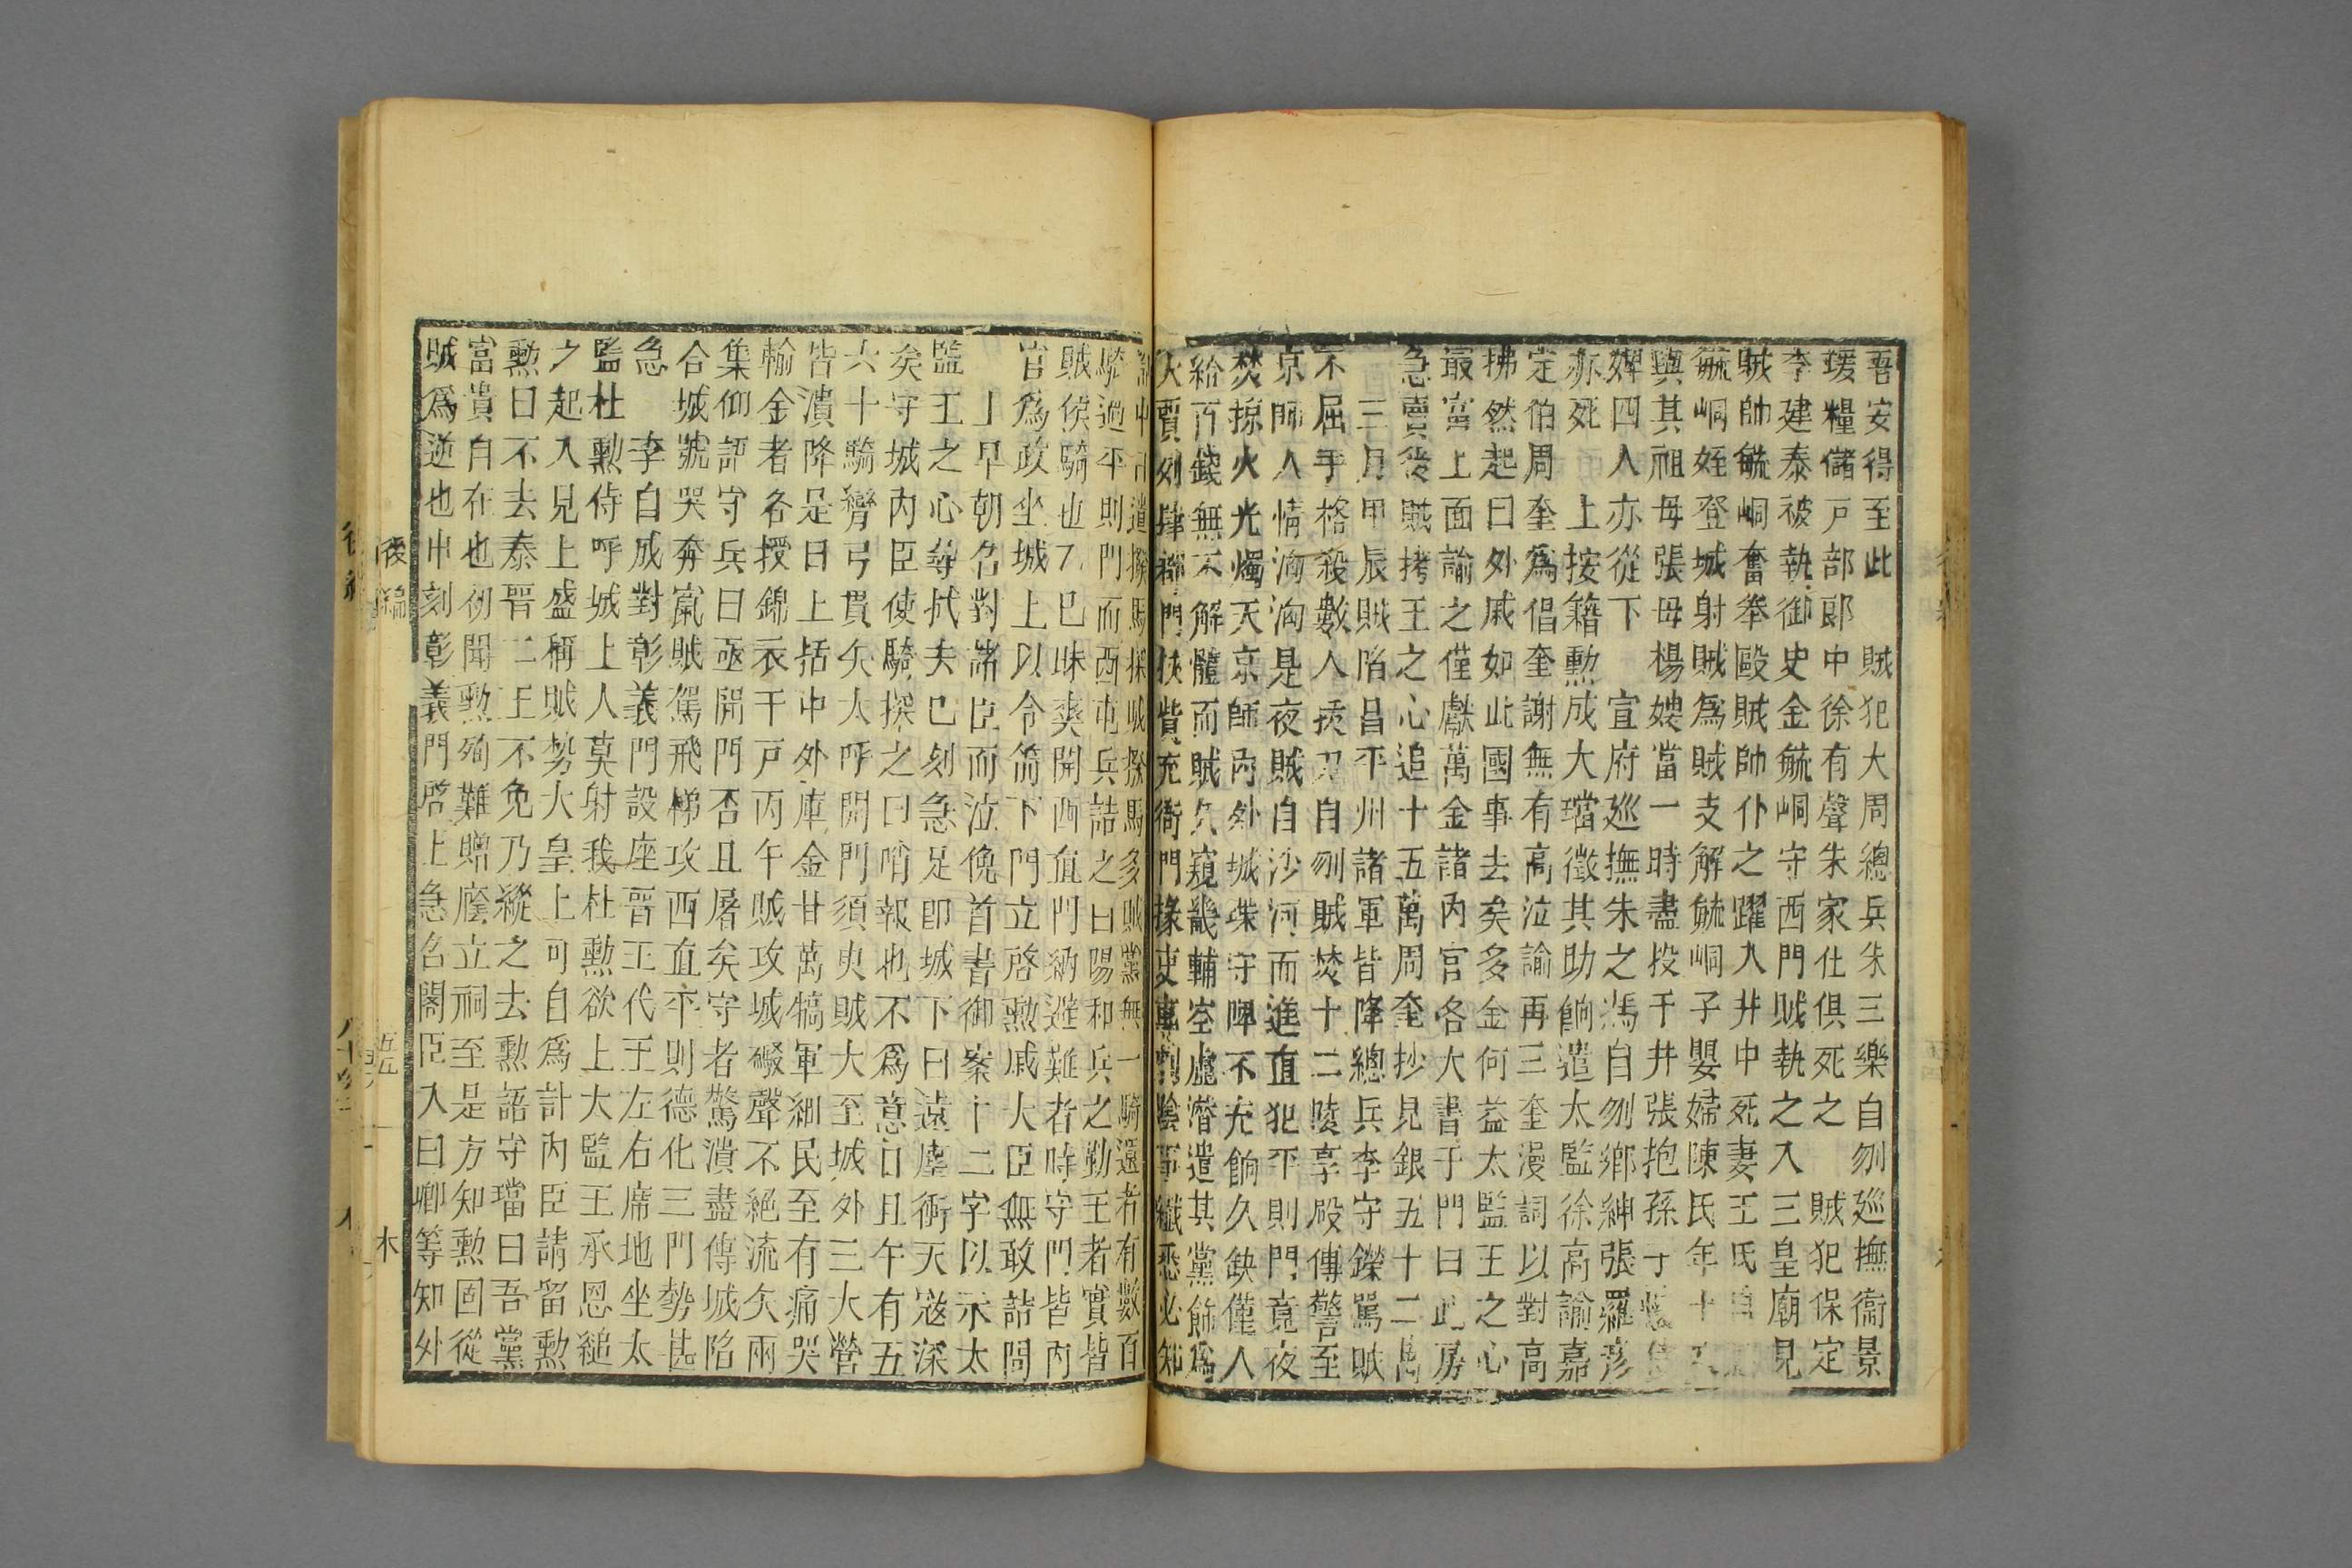 吾安得至此　賊犯大周總兵朱三樂自刎巡撫衞景
瑗糧儲戸部郎中徐有聲朱家仕俱死之　賊犯保定
李建泰被執御史金毓峒守西門賊執之入三皇廟見
賊帥毓峒奮拳毆賊帥仆之躍入井中死妻王氏自
毓峒姪登城射賊爲賊支解毓峒子嬰婦陳氏年十
與其祖母張母楊嫂當一時盡投于井張抱孫于
婢四人亦從下　宣府巡撫朱之馮自刎鄉紳張羅彥
亦死　上按籍勲成大璫徵其助餉遣太監徐高諭嘉
定伯周奎爲倡奎謝無有高泣諭再三奎漫詞以對高
拂然起曰外戚如此國事去矣多金何益太監王之心
最富上面諭之僅獻萬金諸內官各大書于門曰此房
急賣後賊拷王之心追十五萬周奎抄見銀五十二萬
三月甲辰賊陷昌平州諸軍皆降總兵李守鑅罵賊
不屈手格殺數人拔刀自刎賊焚十二陵享殿傳警至
京師人情洶洶是夜賊自沙河而進直犯平則門竟夜
焚掠火光燭天京師內外城堞守陴不充餉久缺僅人
給百錢無不解體而賊久窺畿輔空虛潛遣其黨飾爲
大賈列肆都門挾貲充衙門掾吏專刺陰事纖悉必知
遣撥馬探賊撥馬多賊黨無一騎還者有數百
騎過平則門而西屯兵詰之曰陽和兵之勤王者實皆
賊侯騎也乙巳昧爽開西直門納避難者時守門皆內
官爲政坐城上以令箭下門立啓勲戚大臣無敢詰問
上早朝名對諸臣而泣俛首書御案十二字以示太
監王之心尋拭去巳刻急足叩城下曰遠塵衝天寇深
矣守城內臣使騎探之曰哨報也不爲意日且午有五
六十騎彎弓貫矢大呼開門須臾賊大至城外三大營
皆潰降足日上括中外庫金廿萬犒軍細民至有痛哭
輸金者各授錦衣千戸丙午賊攻城礟聲不絕流矢兩
集仰語守兵曰亟開門否且屠矣守者驚潰盡傳城陷
合城號哭奔竄賊駕飛梯攻西直平則德化三門勢甚
急　李自成對彰義門設座晉王代王左右席地坐太
監杜勲侍呼城上人莫射我杜勲欲上大監王承恩縋
之起入見上盛稱賊勢大皇上可自爲計內臣請留勲
勲曰不去秦晉二王不免乃縱之去勲語守璫曰吾黨
富貴自在也初聞勲殉難贈廕立祠至是方知勲固從
賊爲逆也申刻彰義門啓上急名閣臣入曰卿等知外
後編
五
木